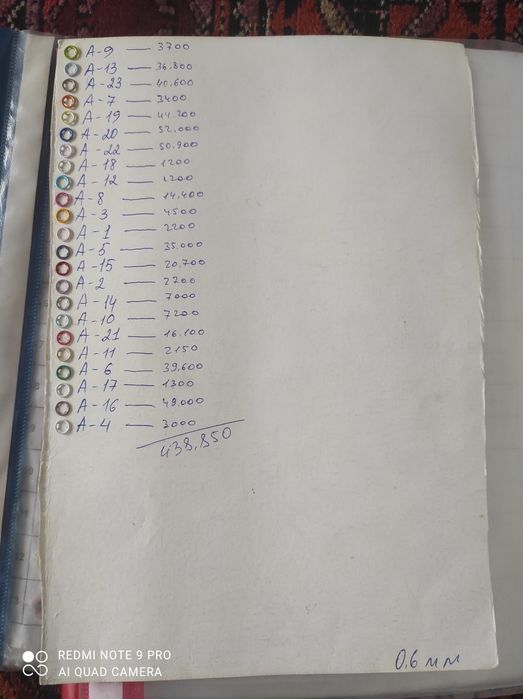 A-9 — 3700
A-13 — 36.800
A-23 — 40.600
A-7 — 3400
A-19 — 44.200
A-20 — 52.000
A-22 — 50.900
A-18 — 1200
A-12 — 1200
A-8 — 14.400
A-3 — 4500
A-1 — 2200
A-5 — 35.000
A-15 — 20.700
A-2 — 2700
A-14 — 7000
A-10 — 7200
A-21 — 16.100
A-11 — 2150
A-6 — 39.600
A-17 — 1300
A-16 — 49.000
A-4 — 3000
438.850
0,6 мм
REDMI NOTE 9 PRO
AI QUAD CAMERA